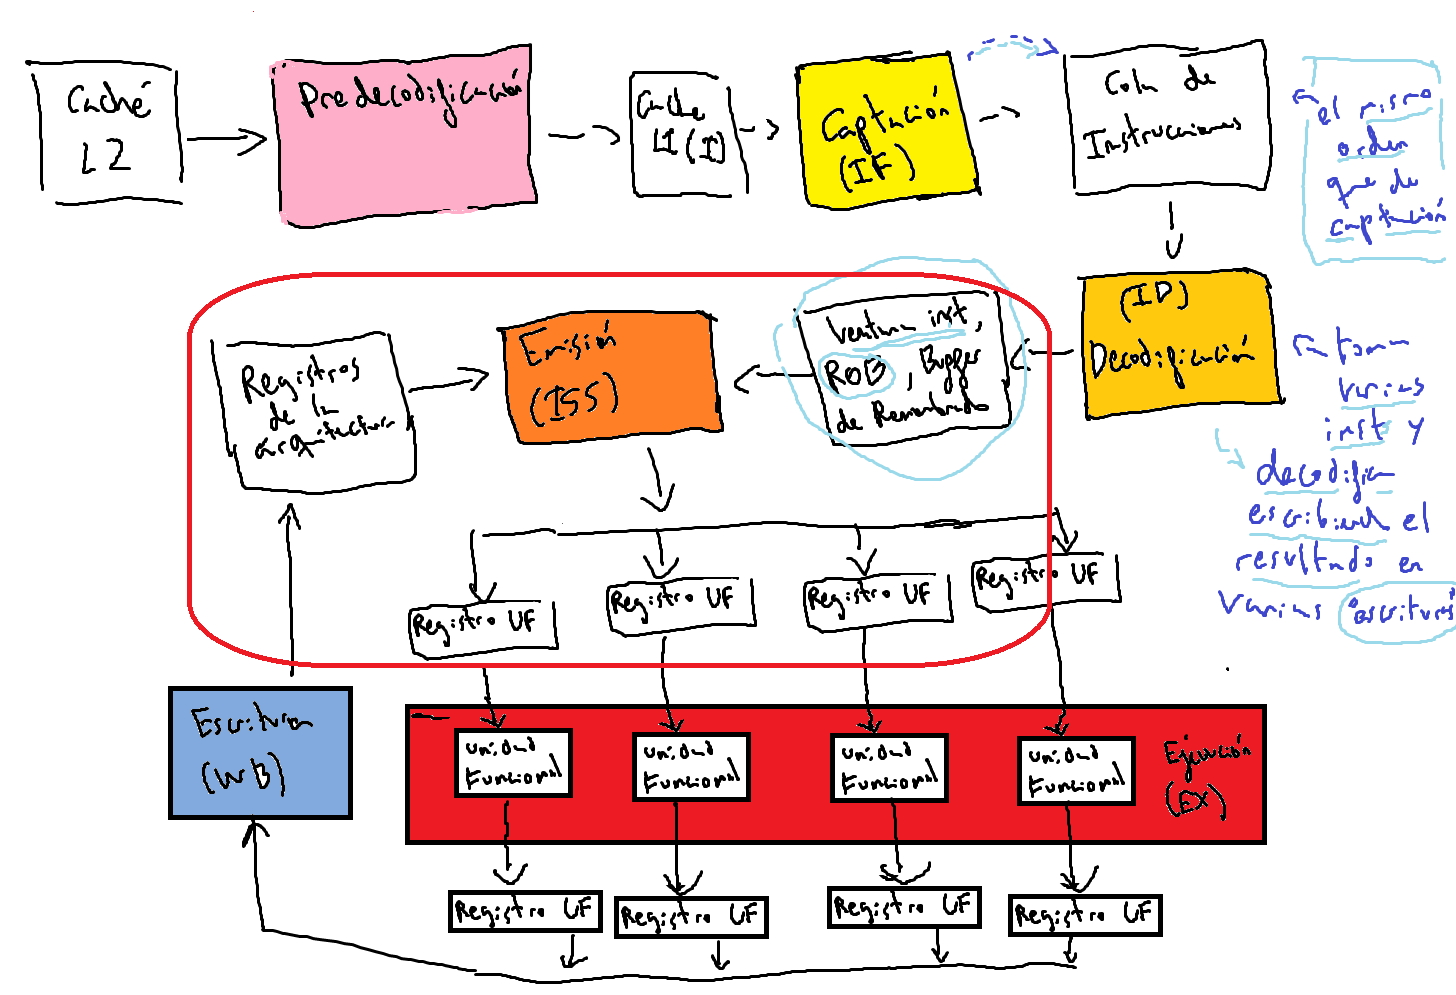 Caché
L2
Predecodificación
Cache
L1 (I)
Captución
(IF)
Cola de
Instrucciones
el mismo
orden
que de
captución
(ID)
Decodificación
toma
varias
inst y
decodifica
escribiendo el
resultado en
varias "escrituras"
Ventana inst,
ROB, Buffer
de Renombrado
Emisión
(ISS)
Registros
de la
arquitectura
Registro UF
Registro UF
Registro UF
Registro UF
Escritura
(WB)
Unidad
Funcional
Unidad
Funcional
Unidad
Funcional
Unidad
Funcional
Ejecución
(EX)
Registro UF
Registro UF
Registro UF
Registro UF